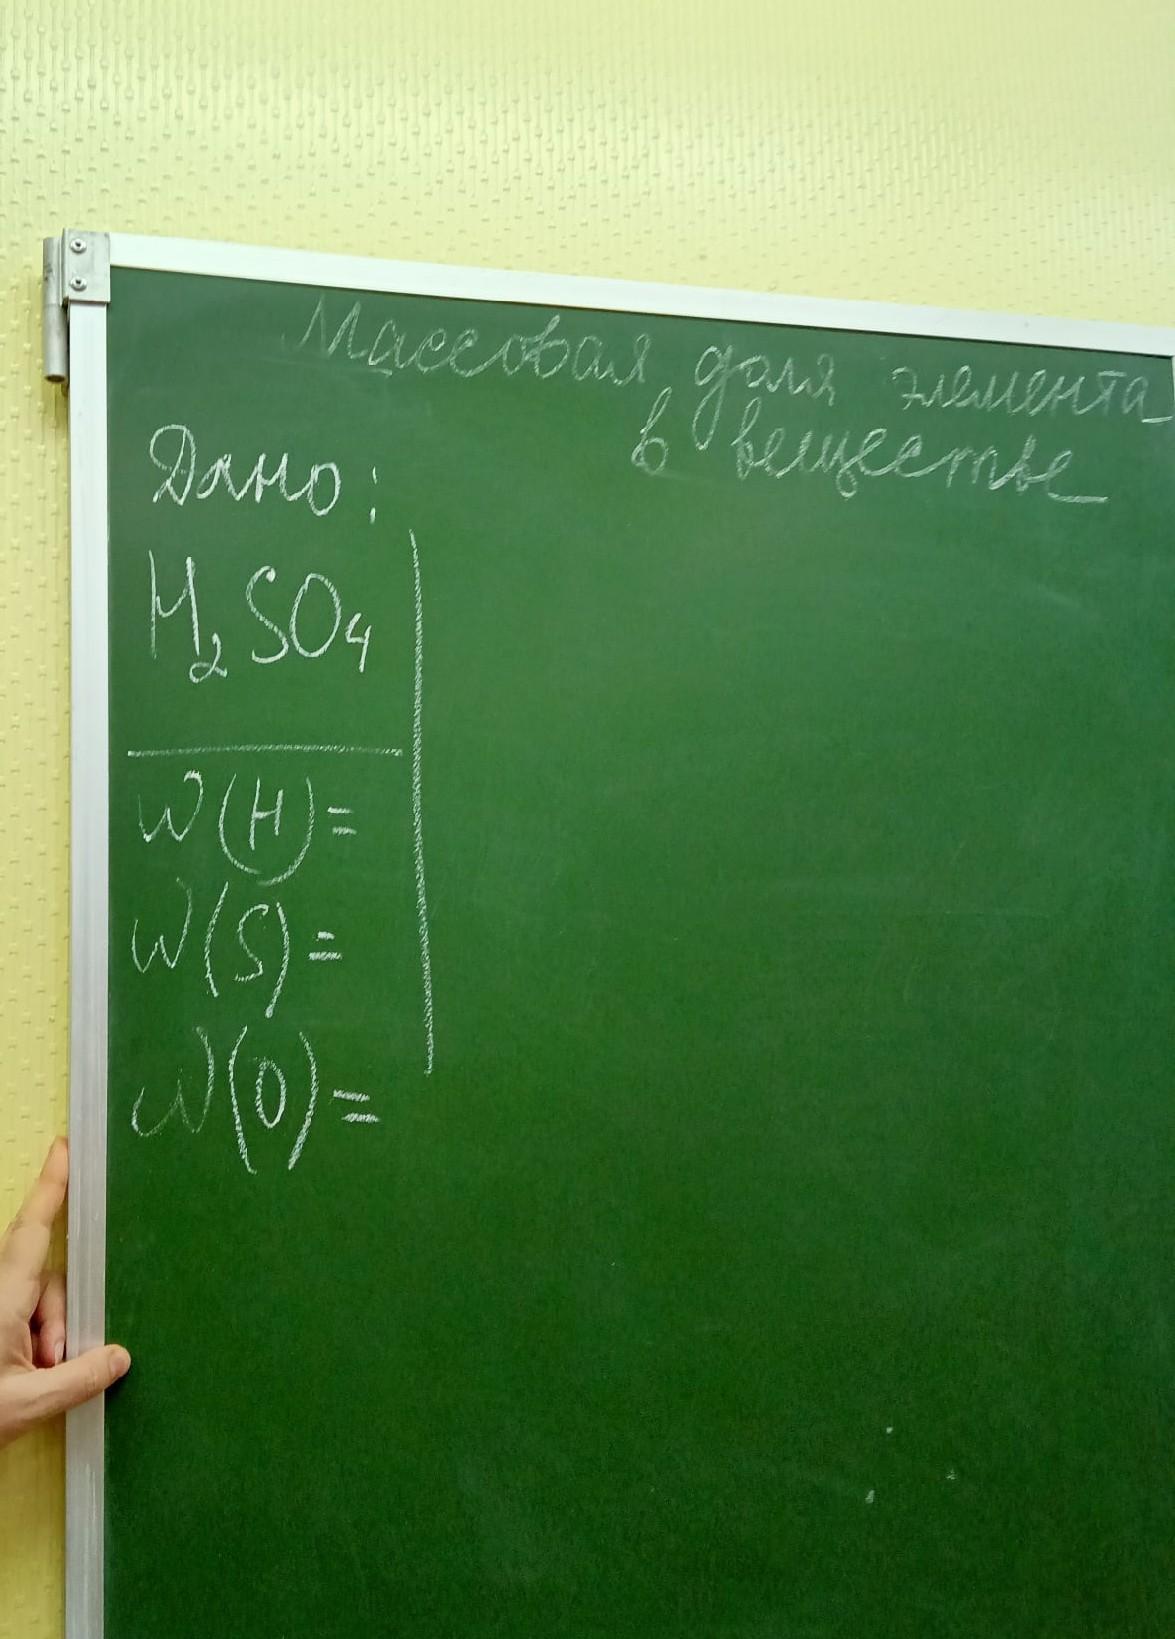 Массовая доля элемента
в веществе
Дано:
H₂SO₄
W(H)=
W(S)=
W(O)=